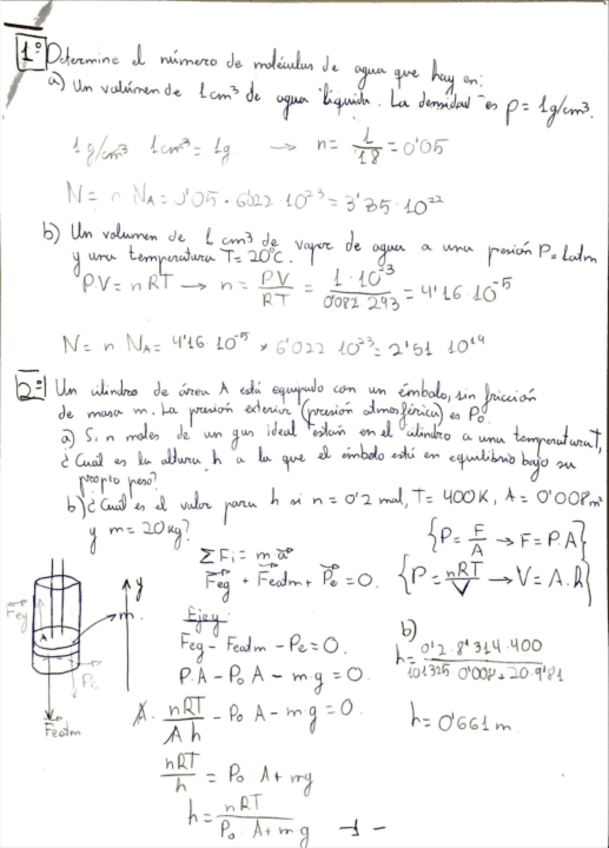 1º Determine el número de moléculas de agua que hay en:
a) Un volúmen de 1cm³ de agua líquida. La densidad es ρ = 1g/cm³.
1 g/cm³ 1cm³ = 1g → n = 1/18 = 0'05
N = n NA = 0'05 · 6'022 · 10²³ = 3'35 · 10²²
b) Un volumen de 1 cm³ de vapor de agua a una presión P = 1atm
y una temperatura T = 20ºC.
P.V = n RT → n = PV/RT = 1 · 10⁻³/0'082 · 293 = 4'16 · 10⁻⁵
N = n NA = 4'16 · 10⁻⁵ × 6'022 10²³ = 2'51 10¹⁹
2º Un cilindro de área A está equipado con un émbolo, sin fricción
de masa m. La presión exterior (presión atmosférica) es P₀.
a) Si n moles de un gas ideal están en el cilindro a una temperatura T,
¿Cuál es la altura h a la que el émbolo está en equilibrio bajo su
propio peso?
b) ¿Cuál es el valor para h si n = 0'2 mol, T = 400K, A = 0'008m²
y m = 20kg?
ΣFi = m·a
Feg + Featm + Pe = 0.
{P = F/A → F = P.A}
{P = nRT/V → V = A.h}
Eje y:
Feg - Featm - Pe = 0.
P.A - P₀ A - m·g = 0
A · nRT/A h - P₀ A - m·g = 0.
nRT/h = P₀ A + mg
h = nRT/P₀ A + mg
b)
h = 0'2 · 8'314 · 400/101325 · 0'008 + 20 · 9'81
h = 0'661 m.
Feg
A
m
y
Pe
Featm
- 1 -